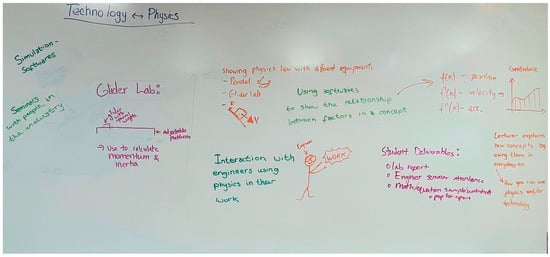 Technology ↔ Physics
Simulation -
Softwares
Seminars
with people in
the industry
Glider Lab:
glider
adjustable
platforms
→ Use to calculate
momentum &
inertia
Showing physics law with different equipment.
- Pendel
- Glider lab
F
V
Using softwares
to show the relationship
between factors in a concept
f(x) - position
f'(x) - velocity →
f''(x) - acc.
Interaction with
engineers using
physics in their
work
Engineer
WORK
Student Deliverables:
o lab report
o Engineer seminar attendance
Lecturer explains
new concepts by
using them in
everyday ex.
How you can use
physics and/or
technology